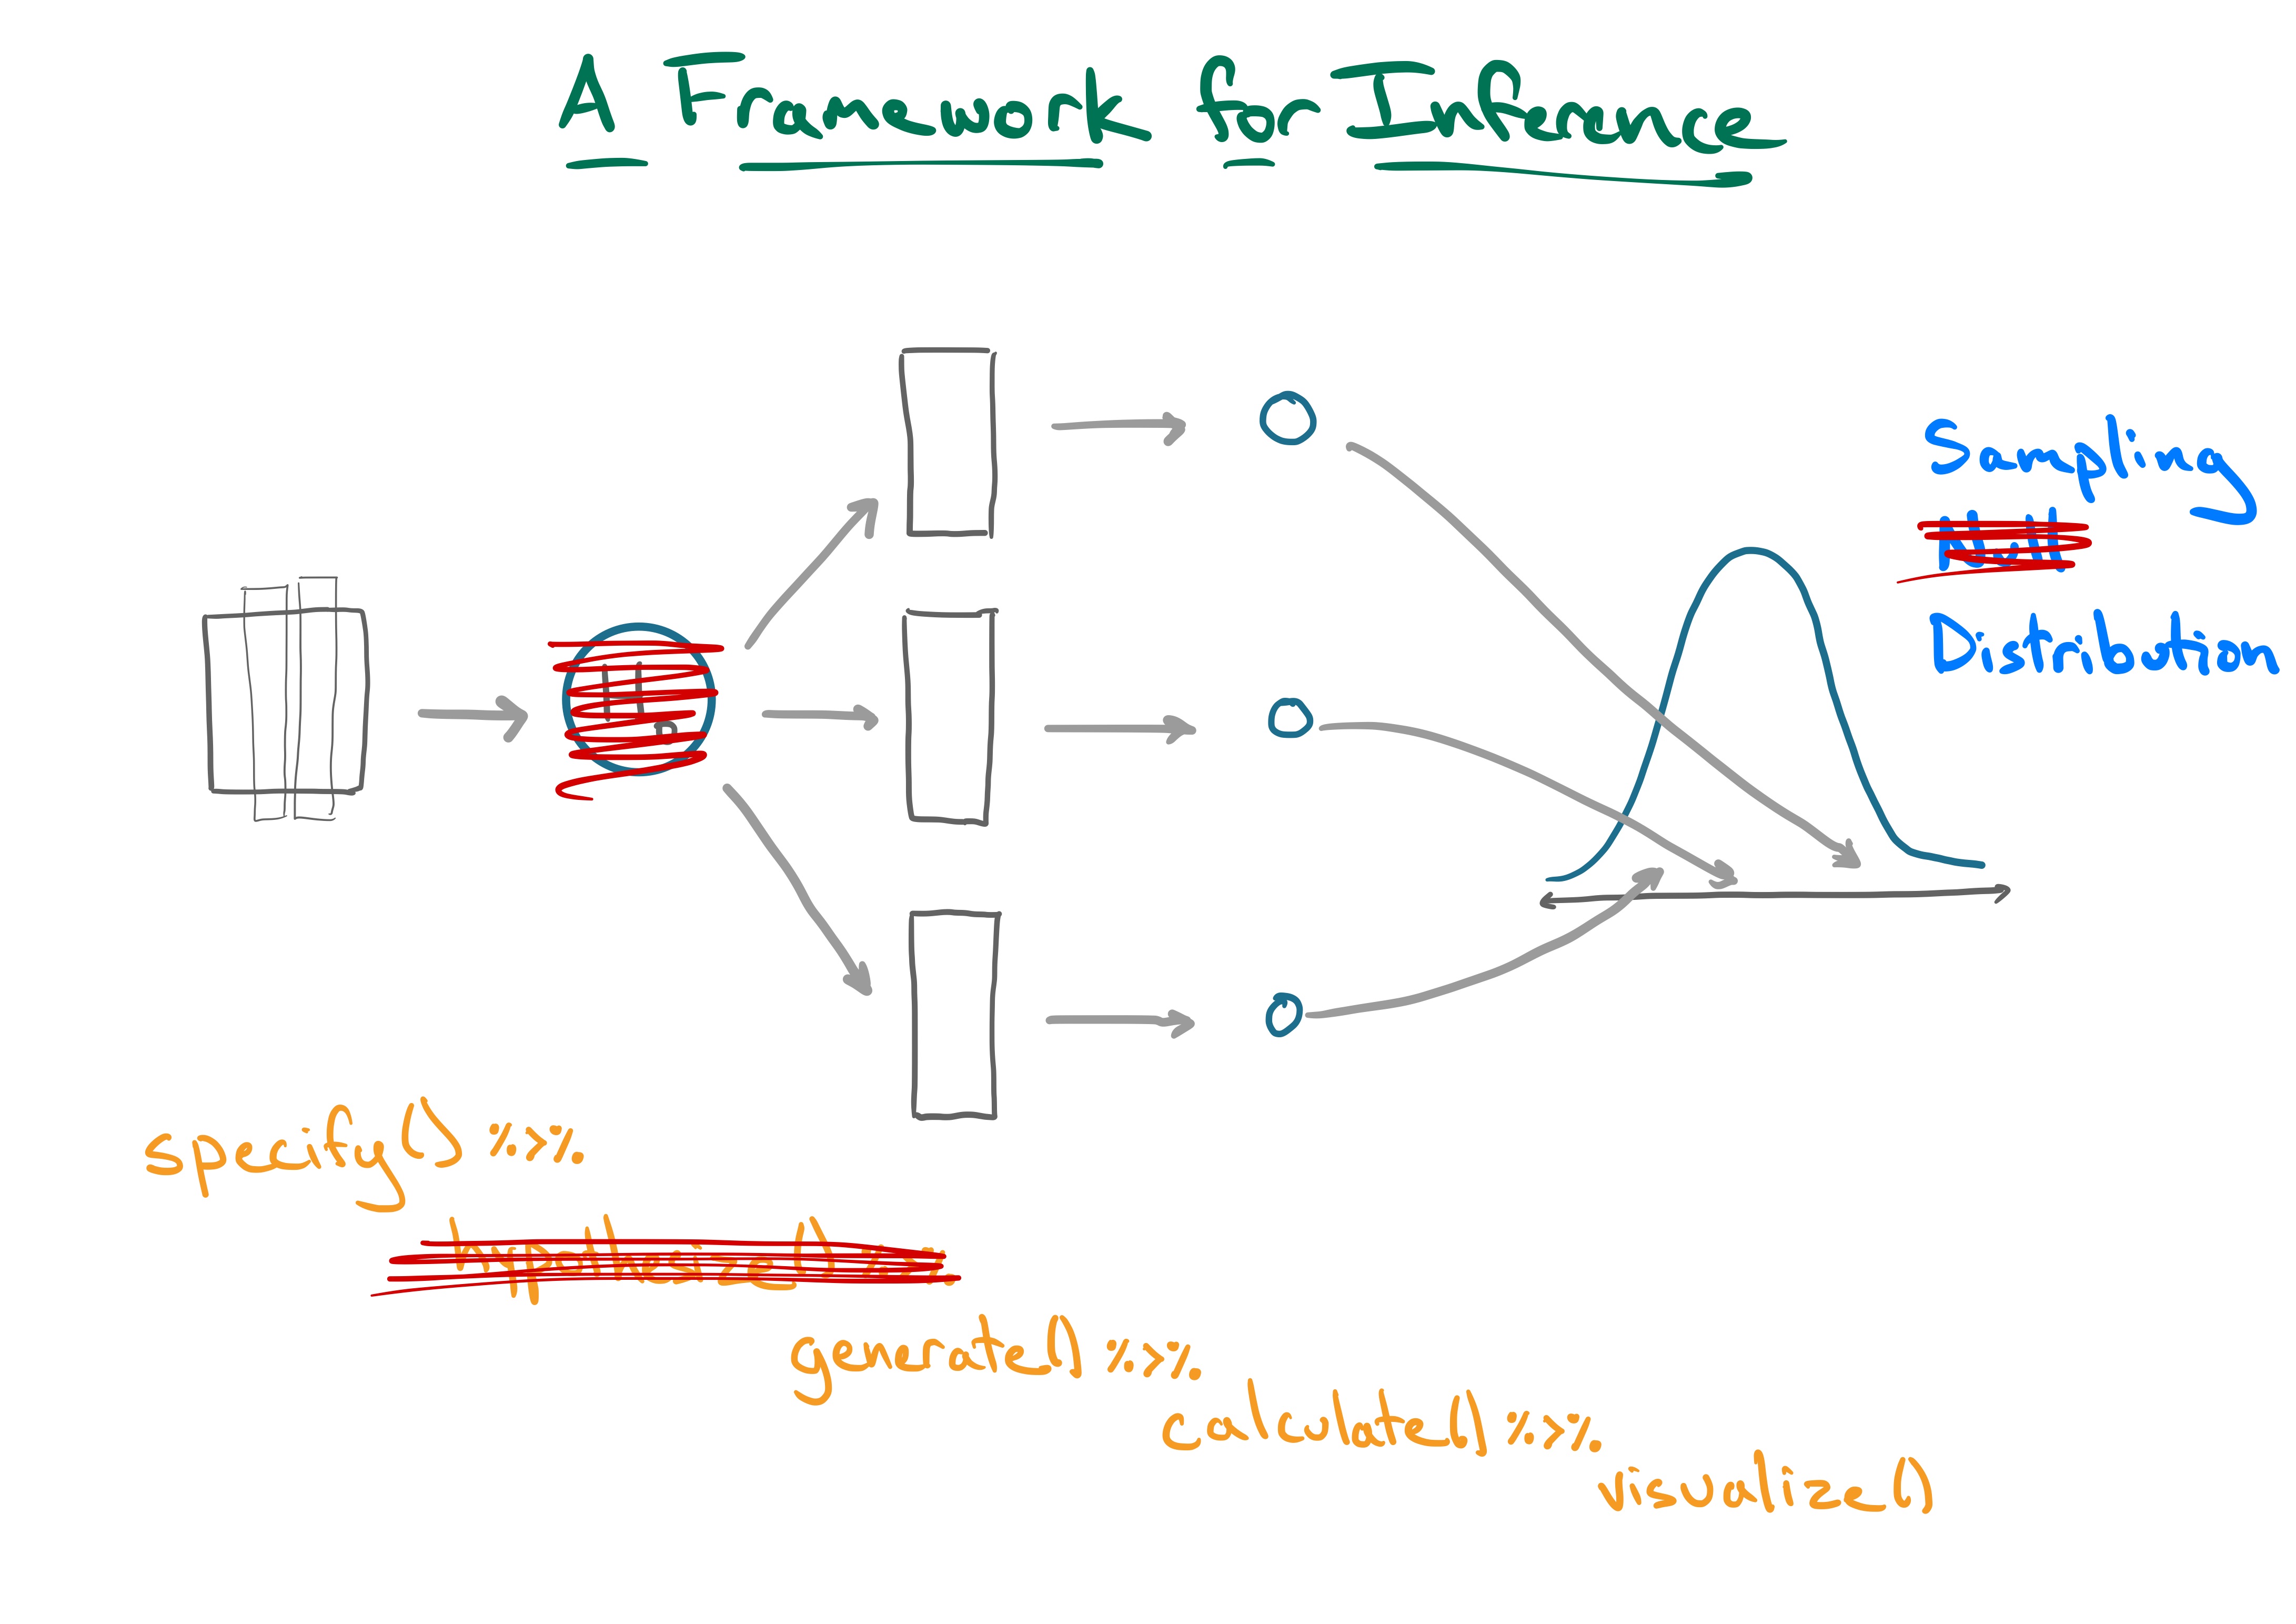 A Framework for Inference
Sampling
Null
Distribution
H0
specify() %>%
hypothesize() %>%
generate() %>%
calculate() %>%
visualize()